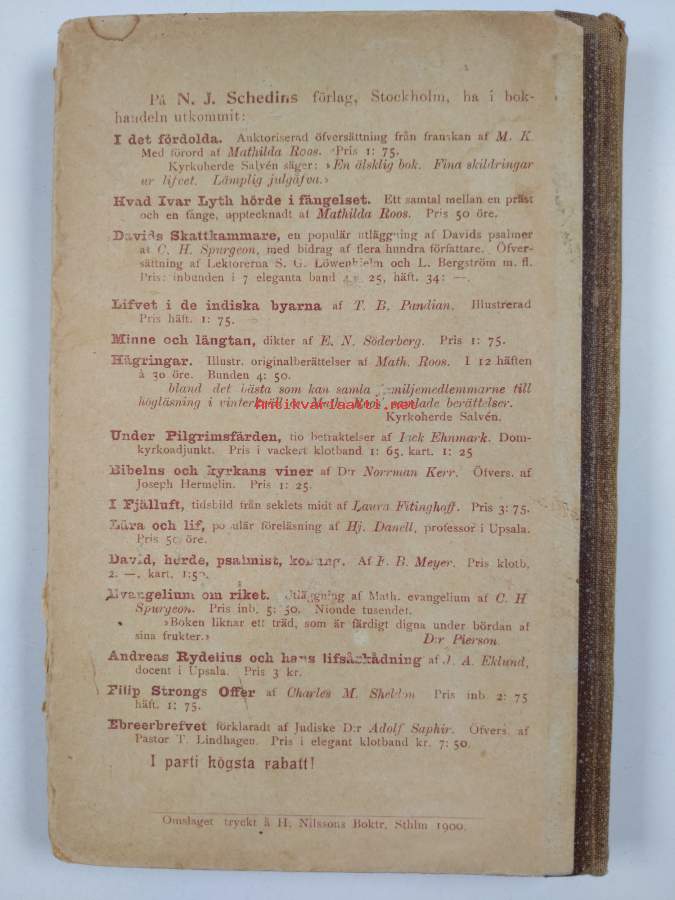 På N. J. Schedins förlag, Stockholm, ha i bok-
handeln utkommit:
I det fördolda. Auktoriserad öfversättning från franskan af M. K.
Med förord af Mathilda Roos. Pris 1: 75.
Kyrkoherde Salvén säger: »En älsklig bok. Fina skildringar
ur lifvet. Lämplig julgåfva.»
Hvad Ivar Lyth hörde i fängelset. Ett samtal mellan en präst
och en fånge, upptecknadt af Mathilda Roos. Pris 50 öre.
Davids Skattkammare, en populär utläggning af Davids psalmer
af C. H. Spurgeon, med bidrag af flera hundra författare. Öfver-
sättning af Lektorerna S. G. Löwenhielm och L. Bergström m. fl.
Pris: inbunden i 7 eleganta band 25, häft. 34: —.
Lifvet i de indiska byarna af T. B. Pandian. Illustrerad
Pris häft. 1: 75.
Minne och längtan, dikter af E. N. Söderberg. Pris 1: 75.
Hägringar. Illustr. originalberättelser af Math. Roos. I 12 häften
à 30 öre. Bunden 4: 50.
bland det bästa som kan samla familjemedlemmarne till
högläsning i samlade berättelser.
antikvariaatti.net
Kyrkoherde Salvén.
Under Pilgrimsfärden, tio betraktelser af Jack Ehnmark. Dom-
kyrkoadjunkt. Pris i vackert klotband 1: 65. kart. 1: 25
Bibelns och kyrkans viner af D:r Norrman Kerr. Öfvers. af
Joseph Hermelin. Pris 1: 25.
I Fjälluft, tidsbild från seklets midt af Laura Fitinghoff. Pris 3: 75.
Lära och lif, populär föreläsning af Hj. Danell, professor i Upsala.
Pris 50 öre.
David, herde, psalmist, konung. Af F. B. Meyer. Pris klotb.
2. —, kart. 1:50.
Evangelium om riket. Utläggning af Math. evangelium af C. H
Spurgeon. Pris inb. 5: 50. Nionde tusendet.
»Boken liknar ett träd, som är färdigt digna under bördan af
sina frukter.» D:r Pierson.
Andreas Rydelius och hans lifsåskådning af J. A. Eklund,
docent i Upsala. Pris 3 kr.
Filip Strongs Offer af Charles M. Sheldon Pris inb. 2: 75
häft. 1: 75.
Ebreerbrefvet förklaradt af Judiske D:r Adolf Saphir. Öfvers. af
Pastor T. Lindhagen. Pris i elegant klotband kr. 7: 50.
I parti högsta rabatt!
Omslaget tryckt å H. Nilssons Boktr. Sthlm 1900.